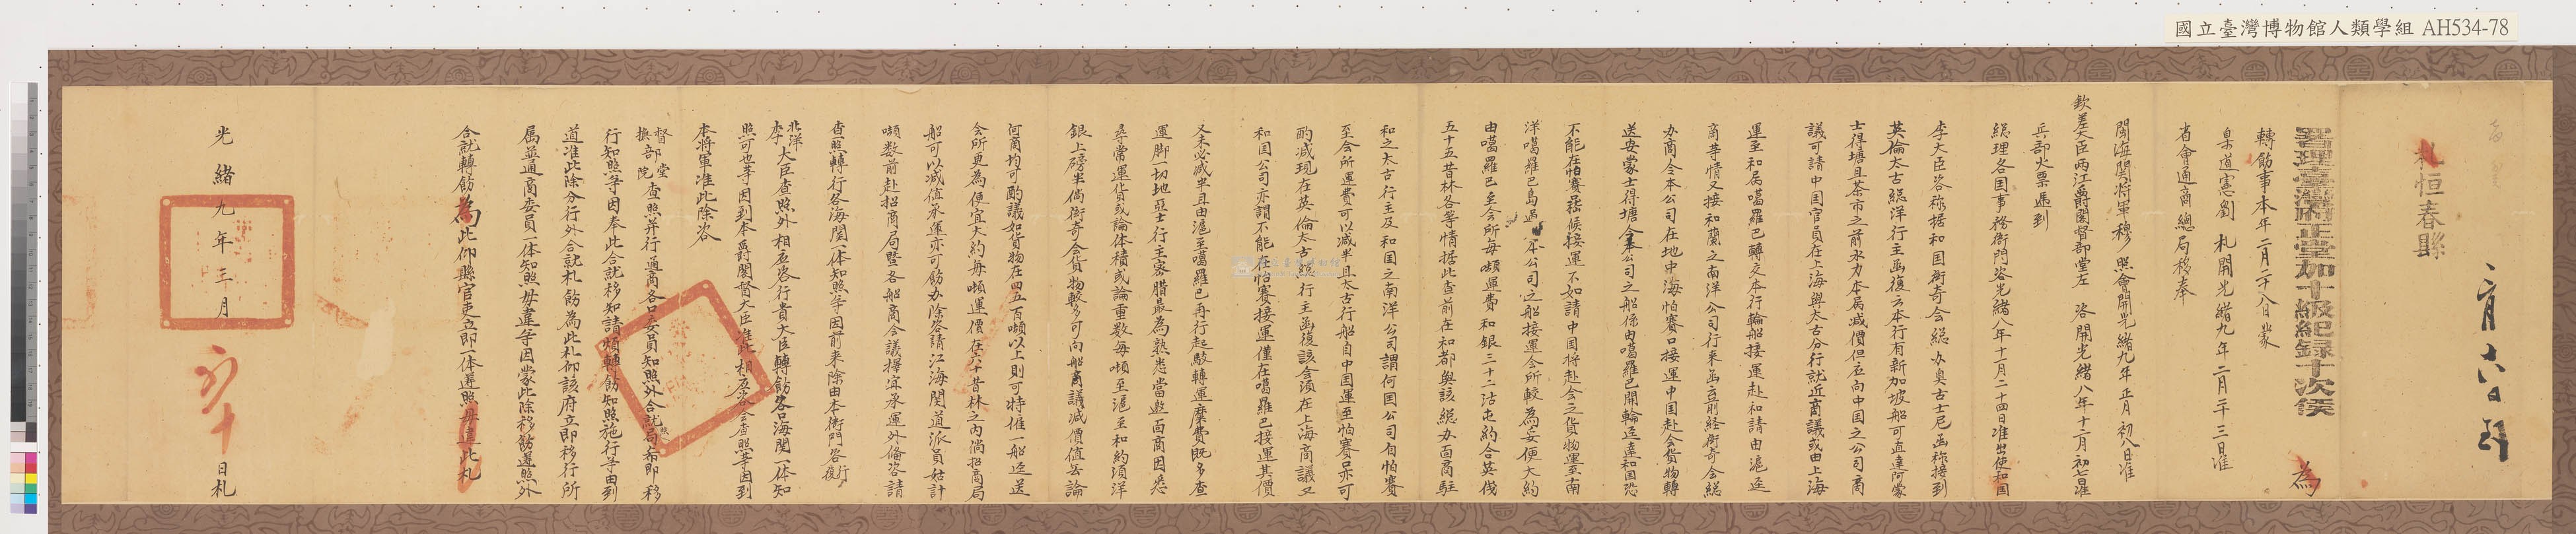 國立臺灣博物館人類學組 AH534-78
六日到
札恒春縣
署理臺灣府正堂加十級紀錄十次侯 為
轉飭事本年二月二十八日蒙
臬道憲劉 札開光緒九年二月二十三日准
省會通商總局移奉
閩海關将軍穆 照會開光緒九年正月初八日准
欽差大臣兩江爵閣督部堂左 咨開光緒八年十二月初七日准
兵部火票遞到
総理各国事務衙門咨光緒八年十一月二十四日准出使和国
李大臣咨称据和国衙奇会総办奥古士尼函称接到
英倫太古総洋行主函復云本行有新加坡船可直達阿蒙
士得塘且茶市之前永力本届减價但应向中国之公司商
議可請中国官員在上海與太古分行就近商議或由上海
運至和属噶羅巴轉交本行輪船接運赴和請由滬逕
商等情又接和蘭之南洋公司行来函言前経衙奇会総
办商令本公司在地中海怕賽口接運中国赴会貨物轉
送安蒙士得塘今本公司之船係由噶羅巴開輪逕達和国恐
不能在怕賽毐候接運不如請中国将赴会之貨物運至南
洋噶羅巴島過 本公司之船接運会所較為妥便大約
由噶羅巴至会所每墩運費和銀三十二沽屯約合英伐
五十五昔林各等情据此查前在和都與該総办面商駐
和之太古行主及和国之南洋公司謂何国公司自怕賽
至会所運費可以减半且太古行船自中国運至怕賽口亦可
酌减現在英倫太古総行主函復該会須在上海商議又
和国公司亦謂不能在怕賽接運僅在噶羅巴接運其價
又未必减半且由滬至噶羅巴再行起駁轉運糜費既多查
運脚一切地亞士行主密腊最為熟悉當邀面商因悉
尋常運貨或論体積或論重数每墩至滬至和約須洋
銀上磅半倘衙奇会貨物較多可向船商議减價值無論
何商均可酌議如貨物在四五百墩以上則可特催一船逕送
会所更為便宜大約每墩運價在六十昔林之内倘招商局
船可以减值承運亦可飭办除咨請江海関道派員姑計
墩数前赴招商局暨各船商会議擇宜承運外偹咨請
查照轉行各海関一体知照等因前来除由本衙門咨行復
北洋李大臣查照外相应咨行貴大臣轉飭各口海関一体知
照可也等因到本爵閣督大臣准此相应咨会查照等因到
本将軍准此除咨
督部堂撫部院查照并行通商各口委員知照外合就照会局希即移
行知照等因奉此合就移知請煩轉飭知照施行等由到
道准此除分行外合就札飭為此札仰該府立即移行所
属並通商委員一体知照毋違等因蒙此除移飭遵照外
合就轉飭為此仰縣官吏立即一体遵照毋違此札
光緒九年三月 日札